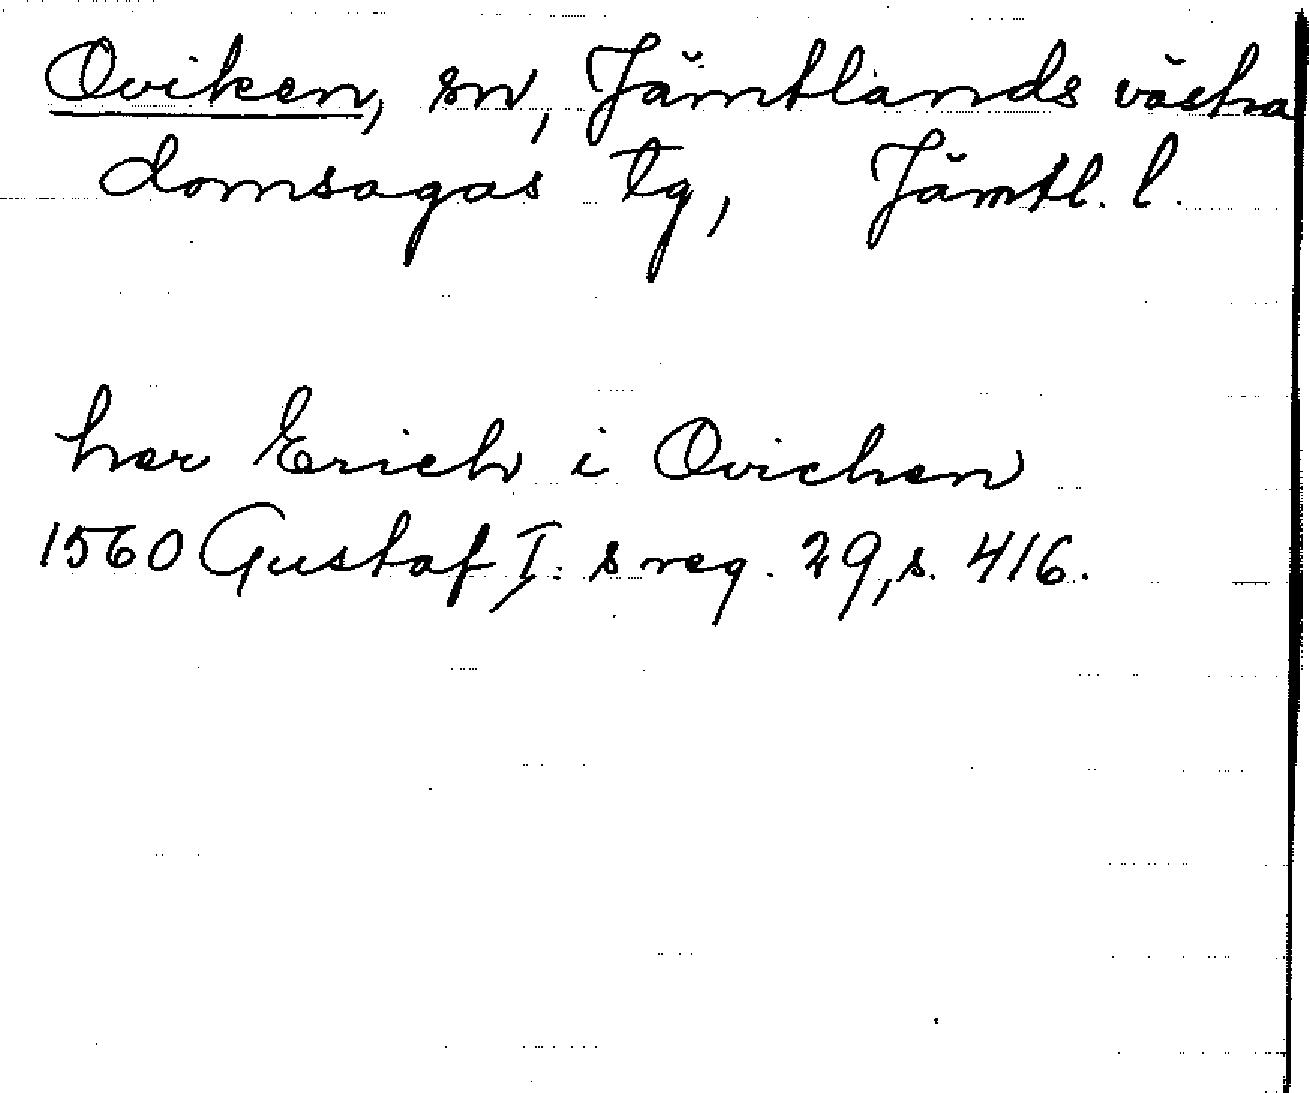 Oviken, sn, Jämtlands västra
domsagas tg, Jämtl. l.
her Erich i Ovichen
1560 Gustaf I:s reg. 29, s. 416.